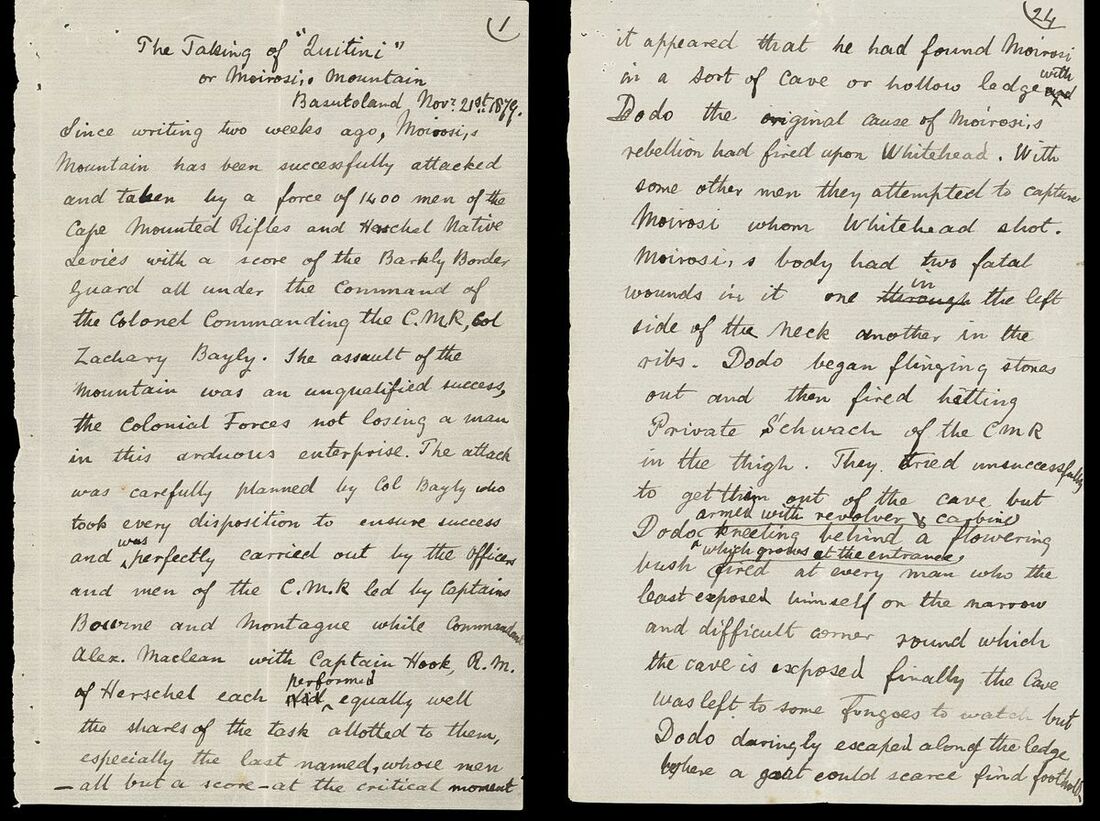 1
The Taking of "Quitini"
or Moirosi,s Mountain
Basutoland, Nov.r 21st 1879.
Since writing two weeks ago, Moirosi,s
Mountain has been successfully attacked
and taken by a force of 1400 men of the
Cape Mounted Rifles and Herschel Native
Levies with a score of the Barkly Border
Guard all under the Command of
the Colonel Commanding the C.M.R, Col
Zachary Bayly. The assault of the
Mountain was an unqualified success,
the Colonial Forces not losing a man
in this arduous enterprise. The attack
was carefully planned by Col Bayly who
took every disposition to ensure success
was
and perfectly carried out by the officers
and men of the C.M.R led by Captains
Bourne and Montague while Commandant
Alex. Maclean with Captain Hook, R.M.
performed
of Herschel each did equally well
the shares of the task allotted to them,
especially the last named, whose men
– all but a score – at the critical moment
24
it appeared that he had found Moirosi
in a sort of cave or hollow ledge and
with
Dodo the original cause of Moirosi,s
rebellion had fired upon Whitehead. With
some other men they attempted to capture
Moirosi whom Whitehead shot.
Moirosi,s body had two fatal
in
wounds in it one through the left
side of the neck another in the
ribs. Dodo began flinging stones
out and then fired hitting
Private Schwach of the CMR
in the thigh. They tried unsuccessfully
to get him out of the cave but
armed with revolver & carbine
Dodo kneeling behind a flowering
which grows at the entrance,
bush fired at every man who the
least exposed himself on the narrow
and difficult corner round which
the cave is exposed finally the Cave
was left to some Fingoes to watch but
Dodo daringly escaped along the ledge
where a goat could scarce find foothold,